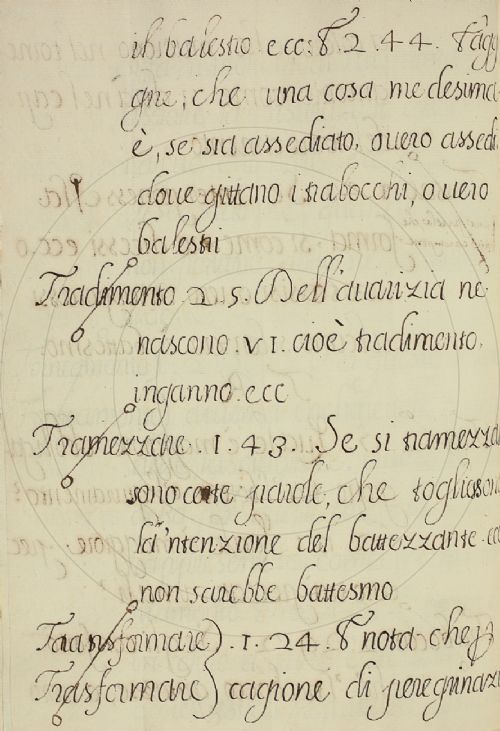 il balestro ecc: E 2. 44. E agg
gne, che una cosa medesima
è, se sia assediato, ouero assedi
doue gittano i trabocchi, o uero
balestri
Tradimento. 2. 5. Dell'auarizia ne
nascono. VI. cioè tradimento,
inganno. ecc
Tramezzare. 1. 43. Se si tramezza
sono certe parole, che togliesson
la 'ntenzione del battezzante. ec
non sarebbe battesmo
Transformare) . 1. 24. E nota che p
Trasformare) cagione di peregrinazi